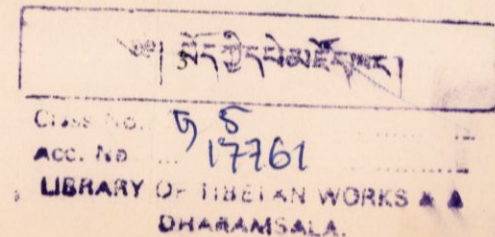 ༄༅། །བོད་ཀྱི་དཔེ་མཛོད་ཁང་།
Class No. ཏ ༦
ACC. No ... 17761
LIBRARY OF TIBETAN WORKS & A
DHARAMSALA.